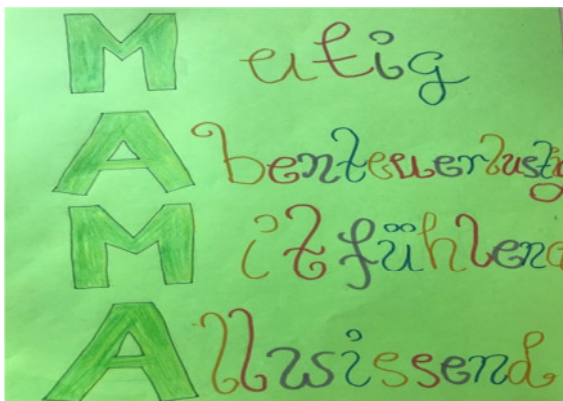 Mutig
Abenteuerlustig
Mitfühlend
Allwissend